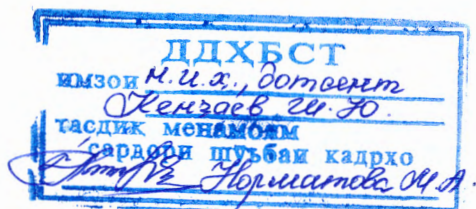 ДДҲБСТ
имзои н.и.х., дотсент
Кенҷаев Ш.Ю.
тасдиқ менамоям
сардори шуъбаи кадрҳо
Норматова М.А.